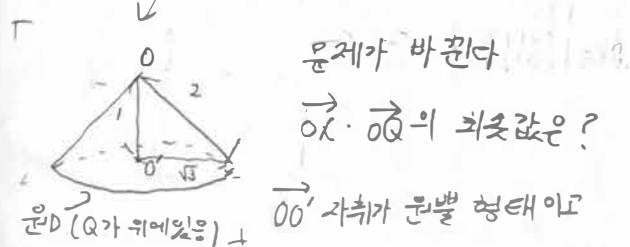 O
1
2
O'
√3
원D (Q가 위에있음)
문제가 바뀐다
→OX · →OQ의 최솟값은?
→OO' 자취가 원뿔 형태이고